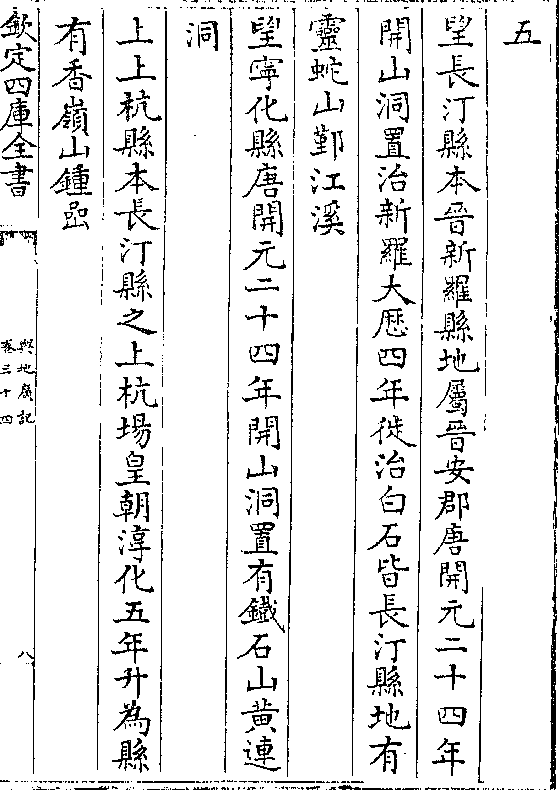 五
望長汀縣本晉新羅縣地屬晉安郡唐開元二十四年
開山洞置治新羅大厯四年徙治白石皆長汀縣地有
靈蛇山鄞江溪
望寧化縣唐開元二十四年開山洞置有鐵石山黄連
洞
上上杭縣本長汀縣之上杭場皇朝淳化五年升為縣
有香嶺山鍾㗊
欽定四庫全書
輿地廣記
卷三十四
八